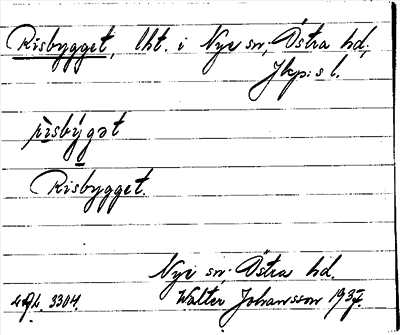 Risbygget, lht. i Nye sn, Östra hd,
Jkp:s l.
rìsbýgət
Risbygget.
Nye sn, Östra hd.
3304. Walter Johansson 1937